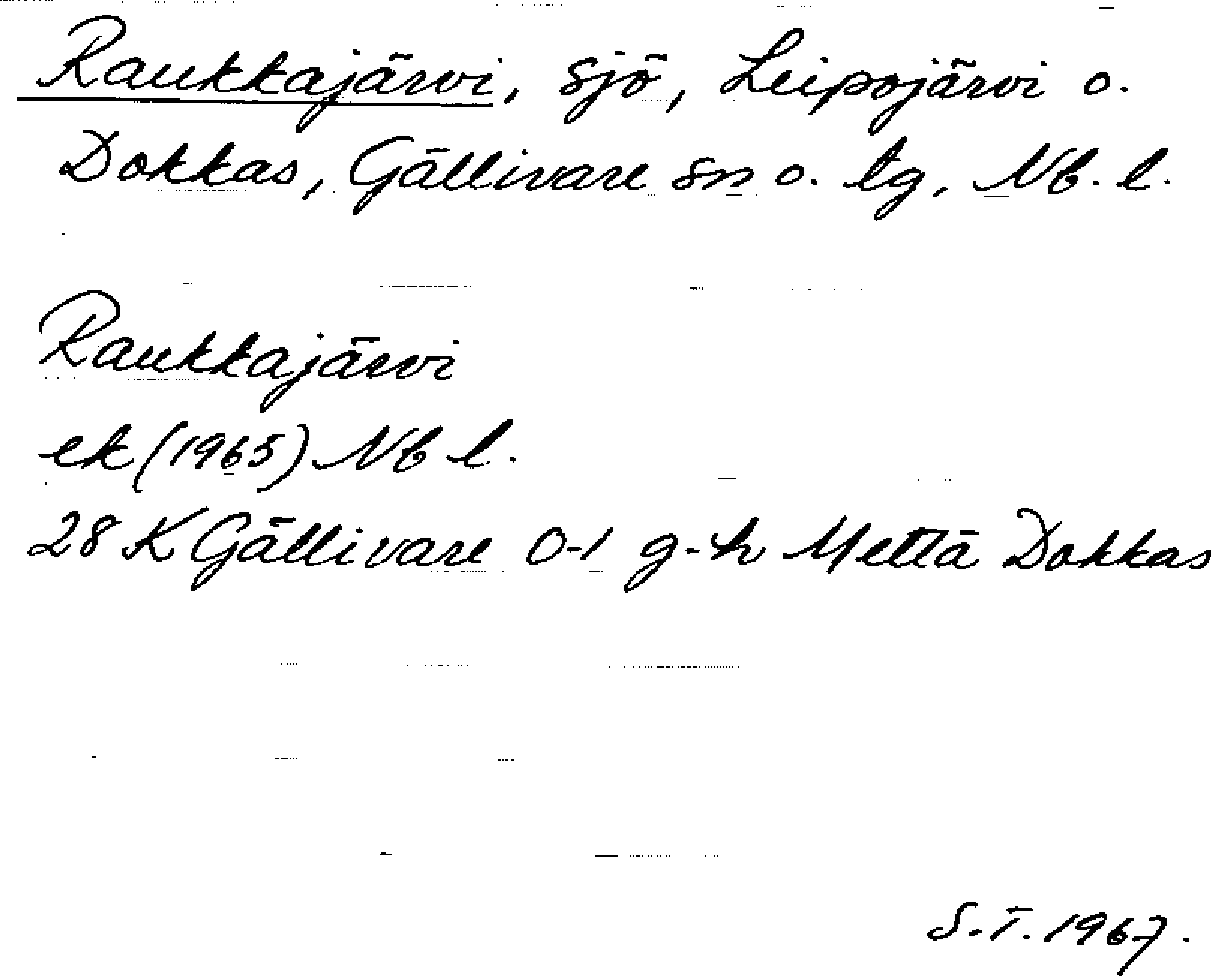 Raukkajärvi, sjö, Leipojärvi o.
Dokkas, Gällivare sn o. tg, Nb. l.
Raukkajärvi
ek (1965) Nb l.
28 K Gällivare 0-1 g-h Mettä Dokkas
S.T. 1967.